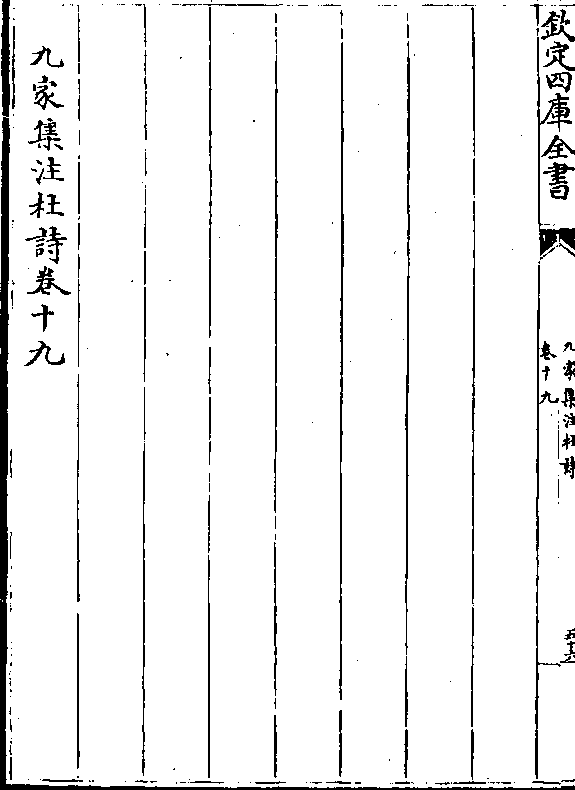 欽定四庫全書
九家集注杜詩
卷十九
五十六
九家集注杜詩卷十九